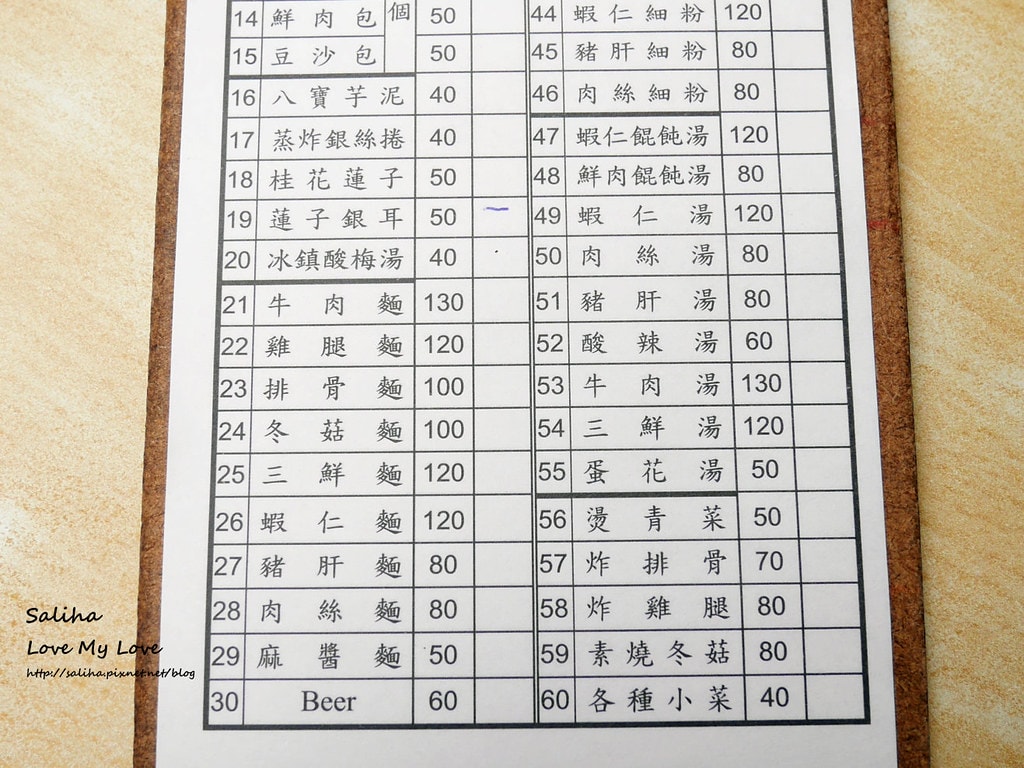 14 鮮肉包 個 50
15 豆沙包 50
16 八寶芋泥 40
17 蒸炸銀絲捲 40
18 桂花蓮子 50
19 蓮子銀耳 50
20 冰鎮酸梅湯 40
21 牛肉麵 130
22 雞腿麵 120
23 排骨麵 100
24 冬菇麵 100
25 三鮮麵 120
26 蝦仁麵 120
27 豬肝麵 80
28 肉絲麵 80
29 麻醬麵 50
30 Beer 60
44 蝦仁細粉 120
45 豬肝細粉 80
46 肉絲細粉 80
47 蝦仁餛飩湯 120
48 鮮肉餛飩湯 80
49 蝦仁湯 120
50 肉絲湯 80
51 豬肝湯 80
52 酸辣湯 60
53 牛肉湯 130
54 三鮮湯 120
55 蛋花湯 50
56 燙青菜 50
57 炸排骨 70
58 炸雞腿 80
59 素燒冬菇 80
60 各種小菜 40
Saliha
Love My Love
http://saliha.pixnet.net/blog